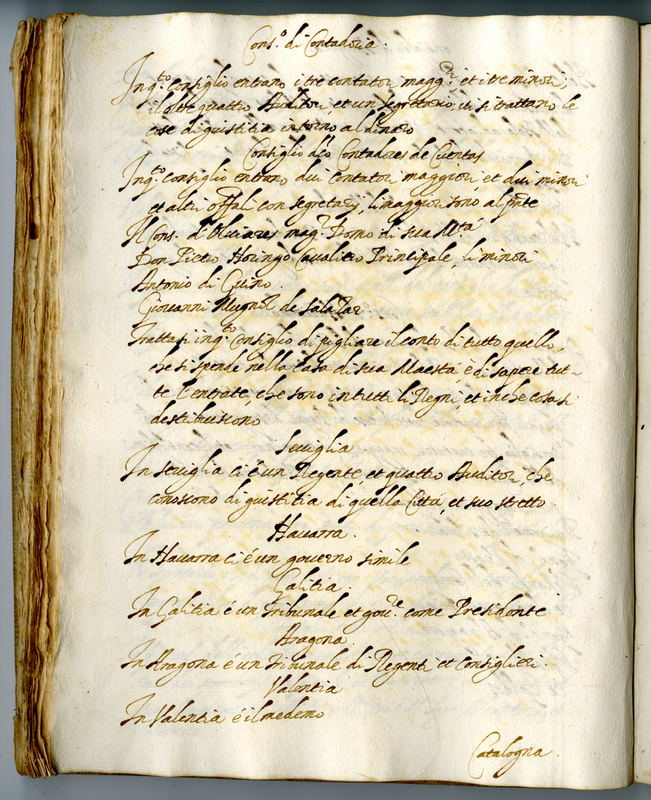 Cons.o di Contadoria.
In q.to consiglio entrano i tre contatori magg.ri et i tre minori,
il oltre quattro Auditori, et un segretario, ci si trattano le
cose di giustitia intorno al dinaro
Consiglio d.co Contadores de Cuentas
In q.to consiglio entrano dui Contatori maggiori et dui minori
et altri offali con segretarij, li maggiori sono al pnte
Il Con. d'Oliuares mag.r Domo di sua M.tà
Don Pietro Cavaliero Principale, li minori
Antonio di
Giovanni de Salazar.
Trattasi in q.to Consiglio di pigliare il conto di tutto quello,
che si spende nella Casa di sua Maestà, è di sapere tut-
te l'entrate, che sono in tutti li Regni, et in che cosa si
destribuiscono
Seviglia
In Seviglia ci è un Regente et quattro Auditori, che
conoscono di giustitia di quella Città, et suo stretto
Navarra.
In Navarra ci è un governo simile
Galitia.
In Galitia è un Tribunale et gou.re come Presidente
Aragona
In Aragona è un Tribunale di Regenti et Consiglieri.
Valentia
In Valentia è il medemo
Catalogna.